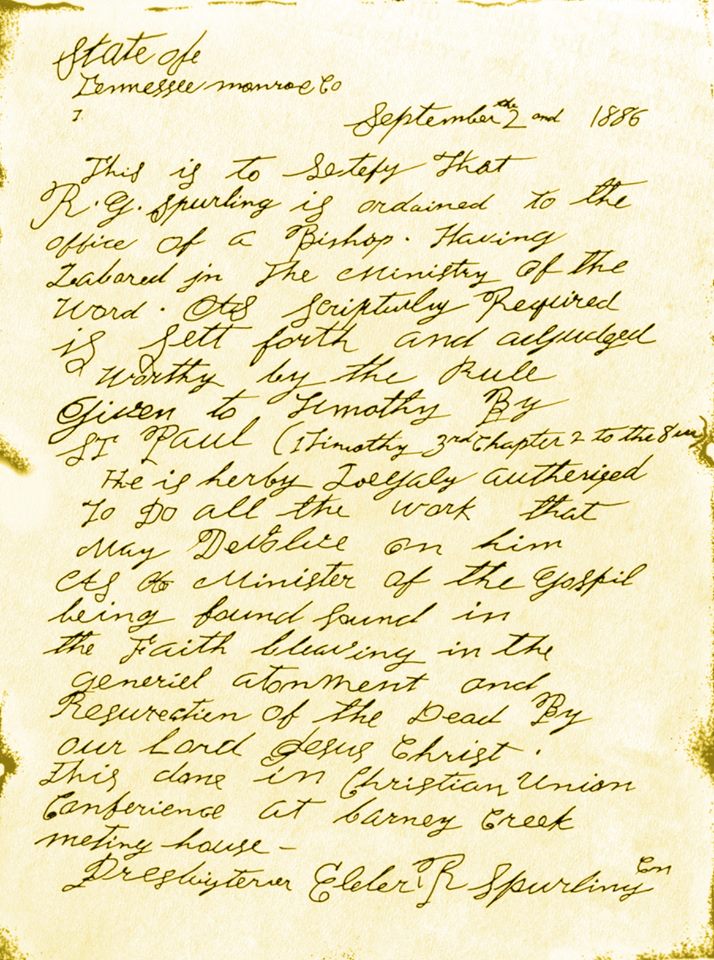 State of
Tennessee monroe Co
September the 2 and 1886
This is to Setefy that
R. G. Spurling is ordained to the
office of a Bishop. Having
Labored in The Ministry of the
Word. As Scripturly Required
is sett forth and adjudged
Worthy by the Rule
Given to Timothy By
ST Paul (1 Timothy 3rd Chapter 2 to the 8
He is herby Loegaly autherized
To Do all the work that
May Devolve on him
As A Minister of the Gospil
being found Sound in
the Faith bleaving in the
generiel atonment and
Resurection of the Dead By
our Lord Jesus Christ.
This done in Christian Union
Conferience at barney Creek
meting house -
Presbyterer Elder R Spurling